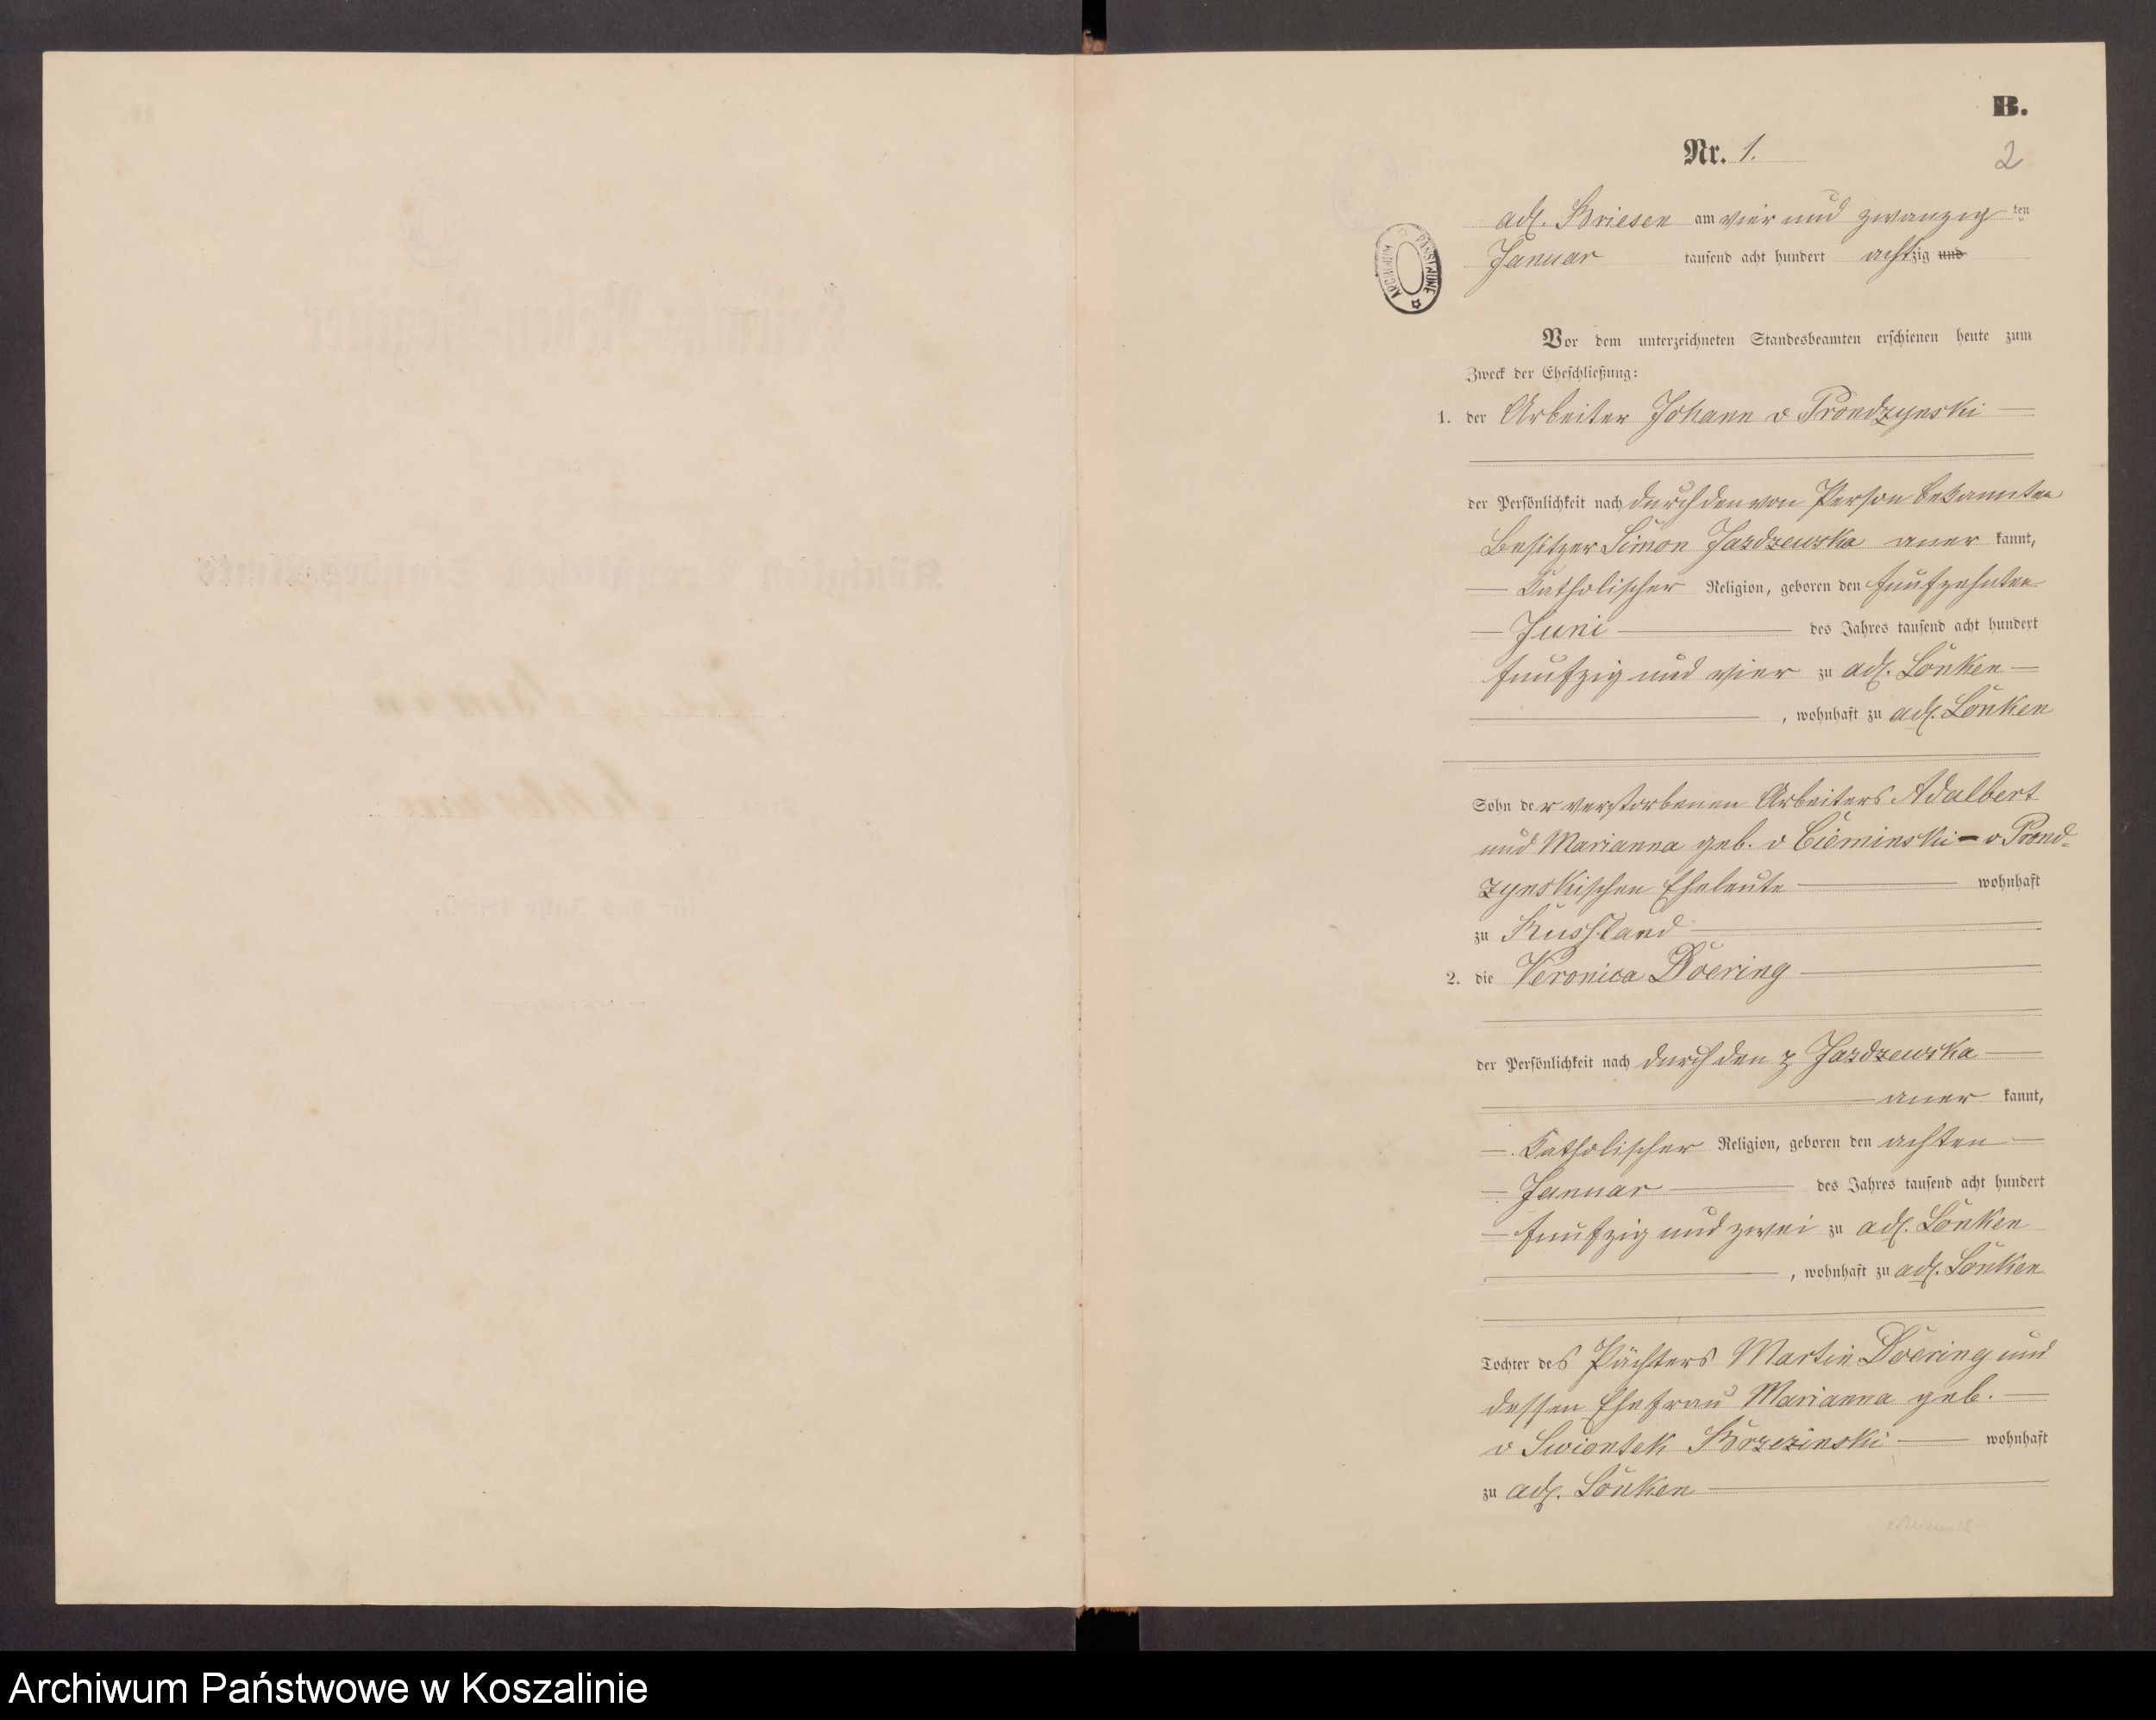 B.
Nr. 1.
2
adl. Briesen am vier und zwanzig ten
Januar tausend acht hundert achtzig und
ARCHIWUM PAŃSTWOWE
Vor dem unterzeichneten Standesbeamten erschienen heute zum
Zweck der Eheschließung:
1. der Arbeiter Johann v Prondzynski
der Persönlichkeit nach durch den von Person bekannten
Besitzer Simon Jazdzewska aner kannt,
Katholischer Religion, geboren den fünfzehnten
Juni des Jahres tausend acht hundert
fünfzig und vier zu adl. Lonken
, wohnhaft zu adl. Lonken
Sohn der verstorbenen Arbeiters Adalbert
und Marianna geb. v Cieminski - v Prond-
zynskischen Eheleute wohnhaft
zu Russland
2. die Veronica Doering
der Persönlichkeit nach durch den Jazdzewska
aner kannt,
Katholischer Religion, geboren den achten
Januar des Jahres tausend acht hundert
fünfzig und zwei zu adl. Lonken
, wohnhaft zu adl. Lonken
Tochter des Pächters Martin Doering und
dessen Ehefrau Marianna geb.
v Swiontek Brzezinski wohnhaft
zu adl. Lonken
Archiwum Państwowe w Koszalinie